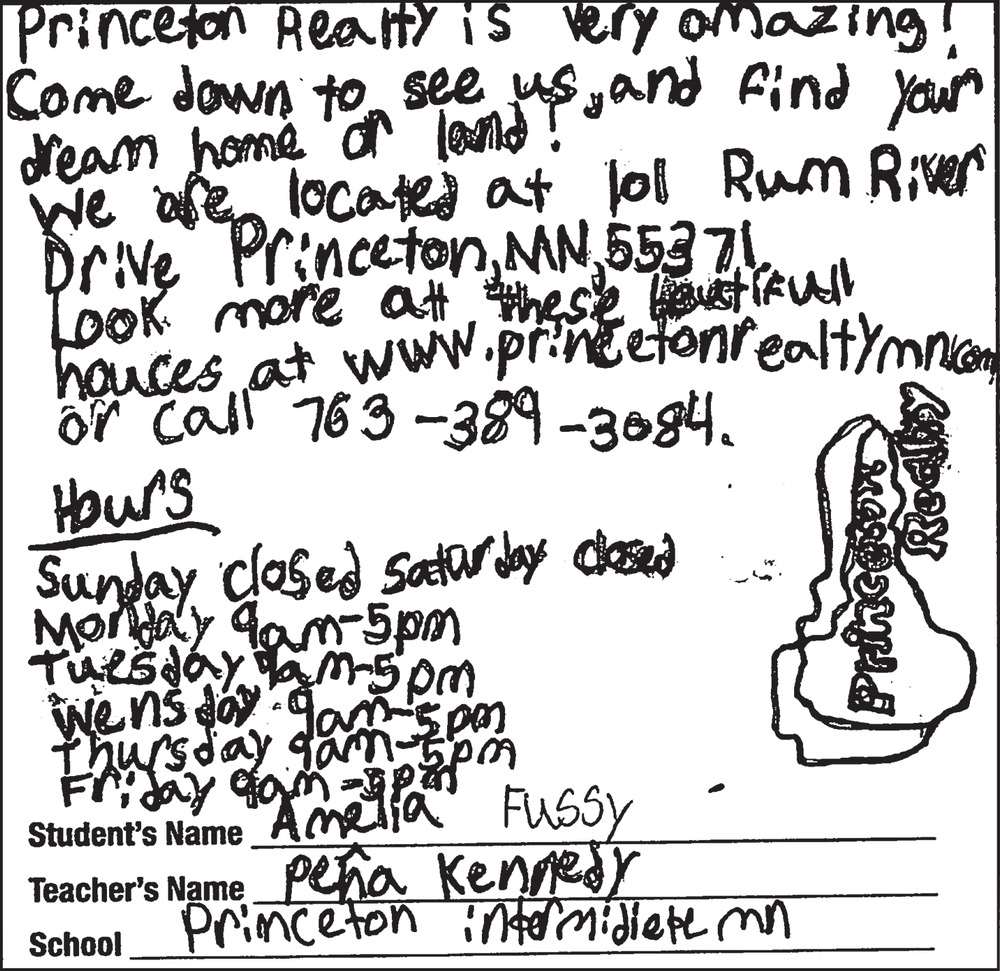 Princeton Realty is very amazing!
Come down to see us, and find your
dream home or land!
We are located at 101 Rum River
Drive Princeton, MN, 55371.
Look more att these beutifull
houces at www.princetonrealtymn.com
or call 763-389-3084.
Hours
Sunday closed saturday closed
Monday 9am-5pm
Tuesday 9am-5pm
Wensday 9am-5pm
Thursday 9am-5pm
Friday 9am-5pm
Princeton
Realty
Student's Name Amelia Fussy
Teacher's Name Peña Kennedy
School Princeton intermidiete mn